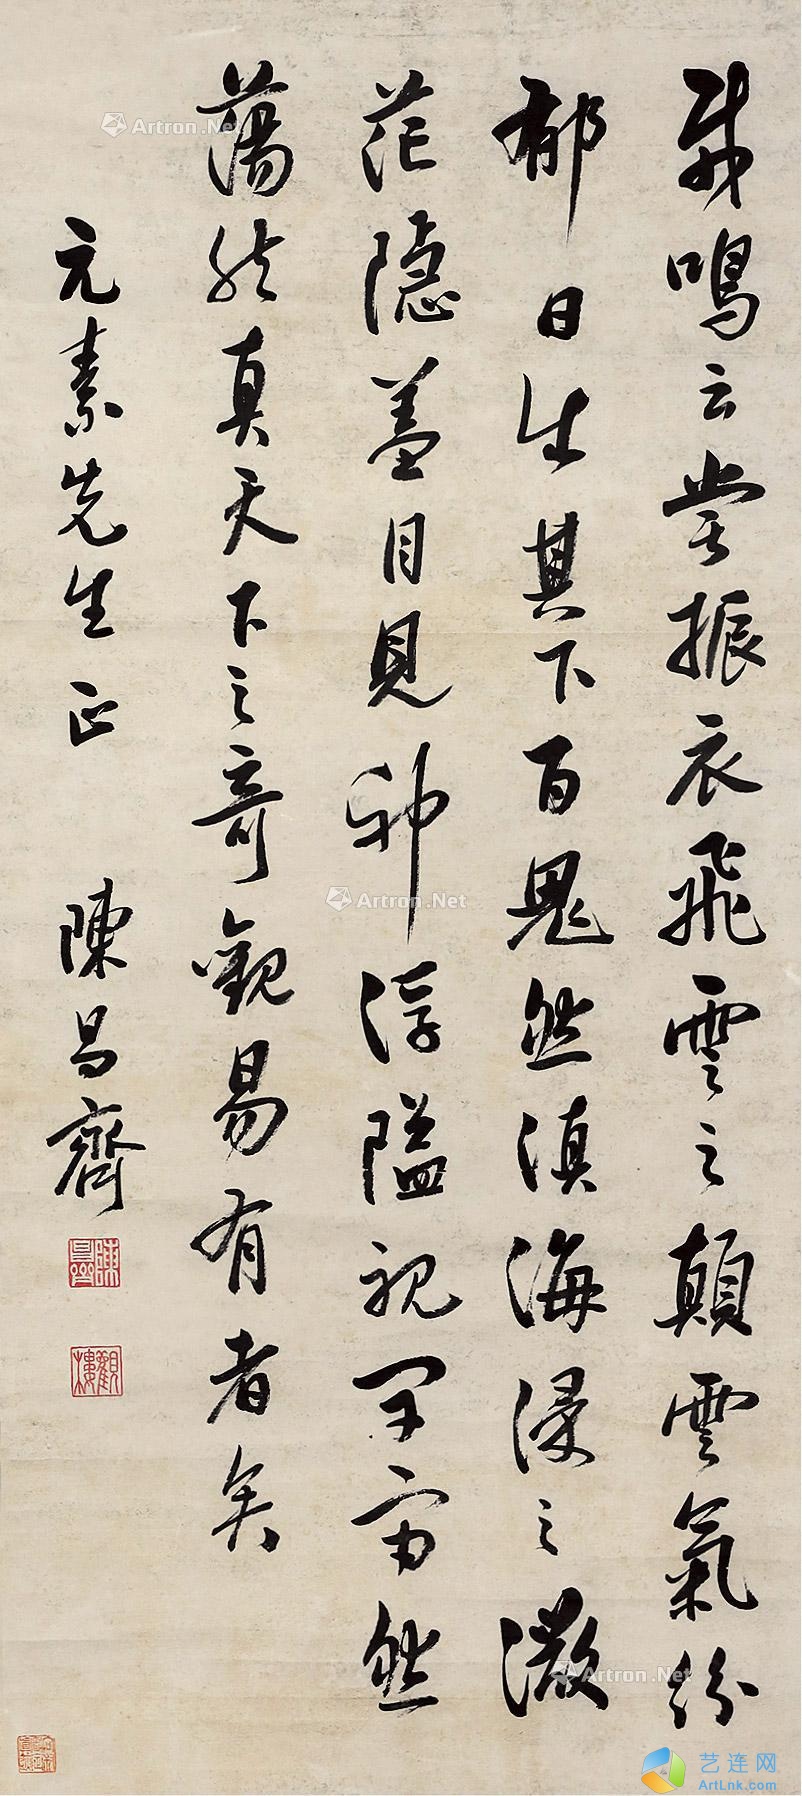 鳴云嘗振衣飛雲之顛雲氣紛
郁日生其下百然滇海浸之
茫隱蓋目見神浮隘視然
蕩然真天下之奇觀易有者矣
元素先生正 陳昌齊
陳昌齊
觀樓
Artron.Net
Artron.Net
Artron.Net
艺连网
ArtLnk.com